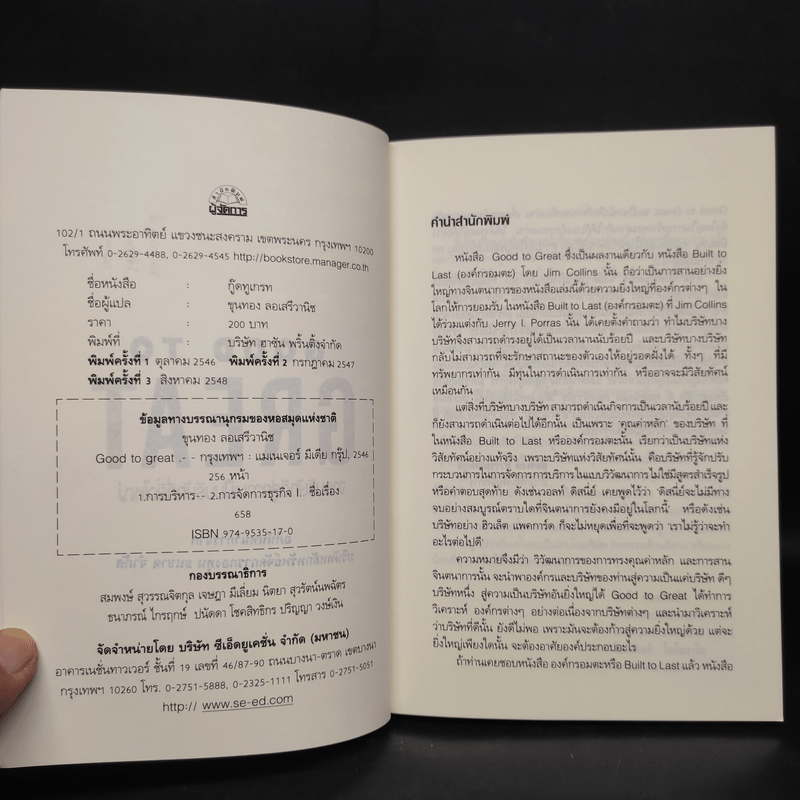 สำนักพิมพ์
ผู้จัดการ
102/1 ถนนพระอาทิตย์ แขวงชนะสงคราม เขตพระนคร กรุงเทพฯ 10200
โทรศัพท์ 0-2629-4488, 0-2629-4545 http://bookstore.manager.co.th
ชื่อหนังสือ : กู๊ดทูเกรท
ชื่อผู้แปล : ขุนทอง ลอเสรีวานิช
ราคา : 200 บาท
พิมพ์ที่ : บริษัท ฮาซัน พริ้นติ้งจำกัด
พิมพ์ครั้งที่ 1 ตุลาคม 2546 พิมพ์ครั้งที่ 2 กรกฎาคม 2547
พิมพ์ครั้งที่ 3 สิงหาคม 2548
ข้อมูลทางบรรณานุกรมของหอสมุดแห่งชาติ
ขุนทอง ลอเสรีวานิช
Good to great .- - กรุงเทพฯ : แมเนเจอร์ มีเดีย กรุ๊ป, 2546
256 หน้า
1.การบริหาร-- 2.การจัดการธุรกิจ I. ชื่อเรื่อง
658
ISBN 974-9535-17-0
กองบรรณาธิการ
สมพงษ์ สุวรรณจิตกุล เจษฎา มีเลี่ยม นิตยา สุวรัตน์นพฉัตร
ธนาภรณ์ ไกรฤกษ์ ปนัดดา โชคสิทธิกร ปริญญา วงษ์เงิน
จัดจำหน่ายโดย บริษัท ซีเอ็ดยูเคชั่น จำกัด (มหาชน)
อาคารเนชั่นทาวเวอร์ ชั้นที่ 19 เลขที่ 46/87-90 ถนนบางนา-ตราด เขตบางนา
กรุงเทพฯ 10260 โทร. 0-2751-5888, 0-2325-1111 โทรสาร 0-2751-5051
http:// www.se-ed.com
คำนำสำนักพิมพ์
หนังสือ Good to Great ซึ่งเป็นผลงานเดียวกับ หนังสือ Built to
Last (องค์กรอมตะ) โดย Jim Collins นั้น ถือว่าเป็นการสานอย่างยิ่ง
ใหญ่ทางจินตนาการของหนังสือเล่มนี้ด้วยความยิ่งใหญ่ที่องค์กรต่างๆ ใน
โลกให้การยอมรับ ในหนังสือ Built to Last (องค์กรอมตะ) ที่ Jim Collins
ได้ร่วมแต่งกับ Jerry I. Porras นั้น ได้เคยตั้งคำถามว่า ทำไมบริษัทบาง
บริษัทจึงสามารถดำรงอยู่ได้เป็นเวลานานนับร้อยปี และบริษัทบางบริษัท
กลับไม่สามารถที่จะรักษาสถานะของตัวเองให้อยู่รอดฝั่งได้ ทั้งๆ ที่มี
ทรัพยากรเท่ากัน มีทุนในการดำเนินการเท่ากัน หรืออาจจะมีวิสัยทัศน์
เหมือนกัน
แต่สิ่งที่บริษัทบางบริษัท สามารถดำเนินกิจการเป็นเวลานับร้อยปี และ
ก็ยังสามารถดำเนินต่อไปได้อีกนั้น เป็นเพราะ 'คุณค่าหลัก' ของบริษัท ที่
ในหนังสือ Built to Last หรือองค์กรอมตะนั้น เรียกว่าเป็นบริษัทแห่ง
วิสัยทัศน์อย่างแท้จริง เพราะบริษัทแห่งวิสัยทัศน์นั้น คือบริษัทที่รู้จักปรับ
กระบวนการในการจัดการการบริการ ในแบบวิวัฒนาการ ไม่ใช่มีสูตรสำเร็จรูป
หรือคำตอบสุดท้าย ดังเช่นวอลท์ ดิสนีย์ เคยพูดไว้ว่า 'ดิสนีย์จะไม่มีทาง
จบอย่างสมบูรณ์ตราบใดที่จินตนาการยังคงมีอยู่ในโลกนี้' หรือดังเช่น
บริษัทอย่าง ฮิวเล็ต แพคการ์ด ก็จะไม่หยุดเพื่อที่จะพูดว่า 'เราไม่รู้ว่าจะทำ
อะไรต่อไปดี'
ความหมายจึงมีว่า วิวัฒนาการของการทรงคุณค่าหลัก และการสาน
จินตนาการนั้น จะนำพาองค์กรและบริษัทของท่านสู่ความเป็นแค่บริษัท ดีๆ
บริษัทหนึ่ง สู่ความเป็นบริษัทอันยิ่งใหญ่ได้ Good to Great ได้ทำการ
วิเคราะห์ องค์กรต่างๆ อย่างต่อเนื่องจากบริษัทต่างๆ และนำมาวิเคราะห์
ว่าบริษัทที่ดีนั้น ยังดีไม่พอ เพราะมันจะต้องก้าวสู่ความยิ่งใหญ่ด้วย แต่จะ
ยิ่งใหญ่เพียงใดนั้น จะต้องอาศัยองค์ประกอบอะไร
ถ้าท่านเคยชอบหนังสือ องค์กรอมตะหรือ Built to Last แล้ว หนังสือ